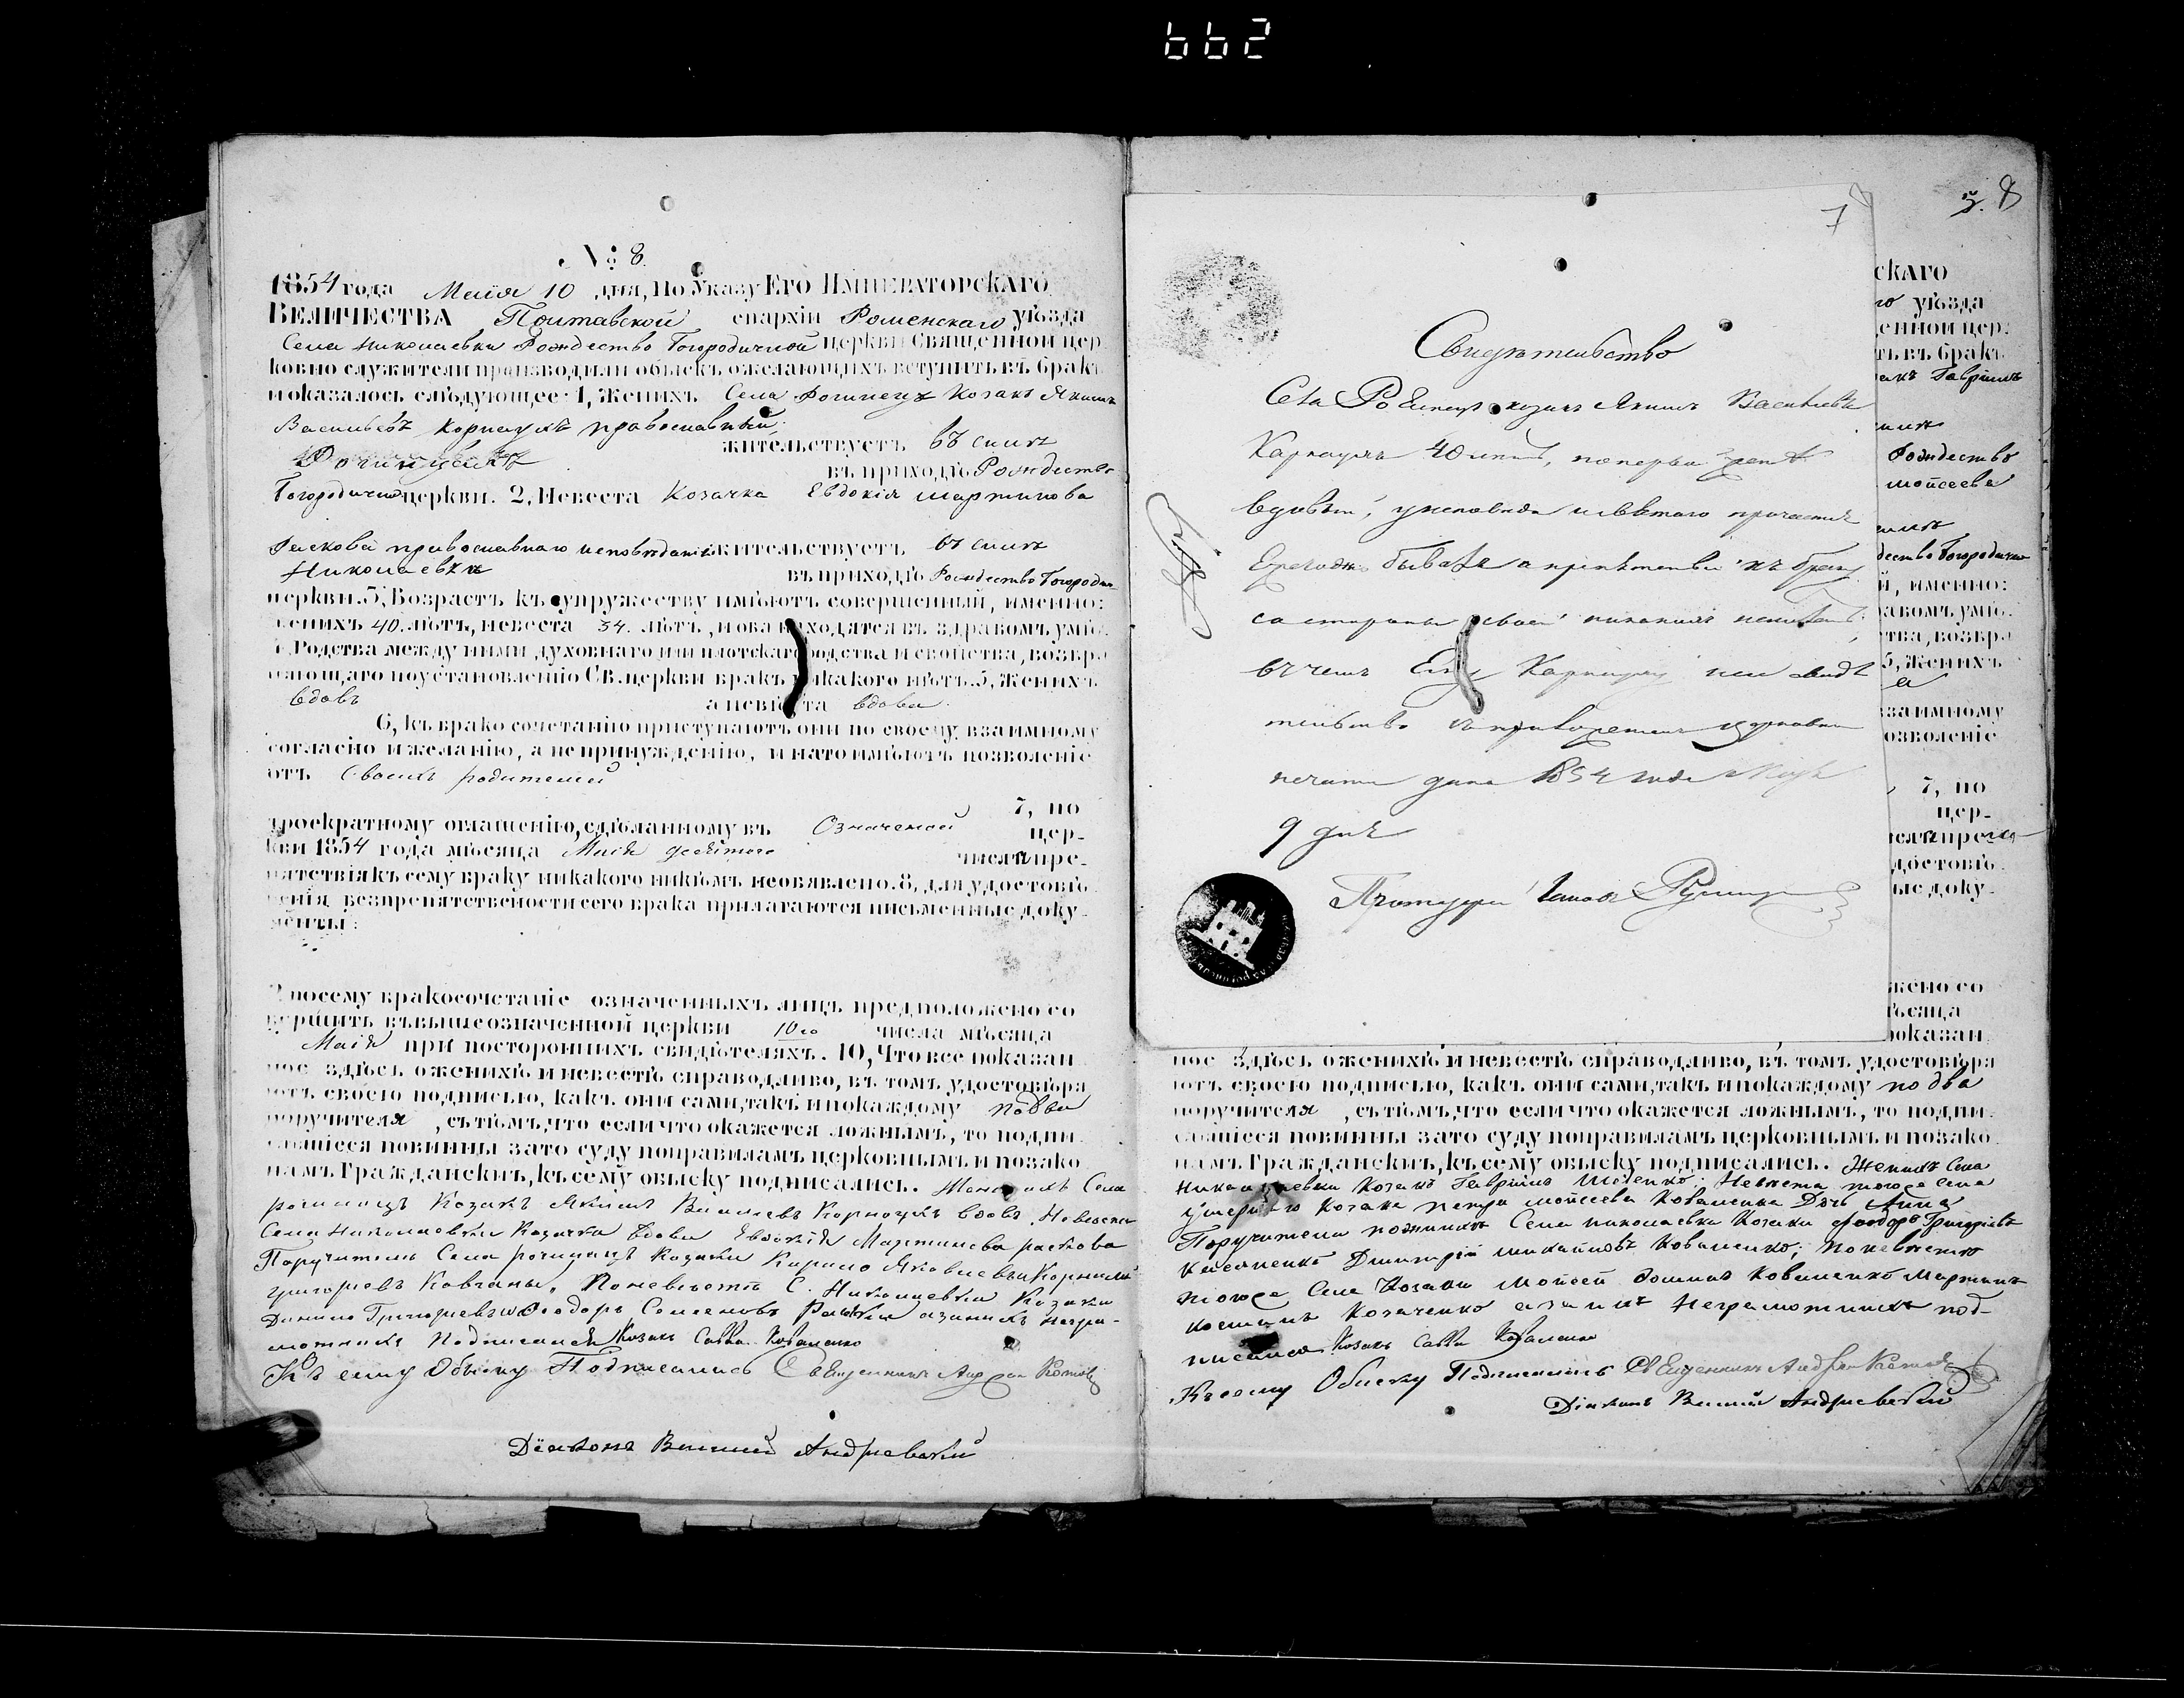 662
№ 8.
1854 года Маія 10 дня, По Указу Его Императорскаго
Величества Полтавской епархіи Роменскаго уѣзда
Села Николаевки Рождество Богородичной церкви Священной цер
ковно служители производили обыскъ ожелающихъ вступить въ бракъ
и оказалось слѣдующее: 1, Женихъ Села Рогинецъ Козакъ Якимъ
Васильевъ Карнаухъ православный;
жительствуетъ въ силѣ
Рогинцахъ
въ приходѣ Рождество
Богородичной церкви. 2, Невеста Козачка Евдокія Мартинова
Раскова православнаго исповѣданія жительствуетъ въ силѣ
Николаевкѣ въ приходѣ Рождество Богородич
церкви. 3, Возрастъ къ супружеству имѣютъ совершенный, именно:
женихъ 40. лѣтъ, невеста 34. лѣтъ, и оба находятся въ здравомъ умѣ.
Родства между ними духовнаго или плотскаго родства и свойства, возбра
няющаго поустановленію СВ. церкви бракъ никакого нѣтъ. 5, Женихъ
вдовъ а невѣста вдова.
6, къ брако сочетанію приступаютъ они по своему взаимному
согласію и желанію, а не принужденію, и на то имѣютъ позволеніе
отъ Своихъ родителей
7, по
троекратному оглашенію, сдѣланному въ Означеной цер-
кви 1854 года мѣсяца Маія десятого числа пре-
пятствія къ сему браку никакого никѣмъ необявлено. 8, для удостовѣ
ренія безпрепятствености сего брака прилагаются письменные доку
менты:
посему бракосочетаніе означенныхъ лицъ предположено со
вершить въ вышеозначенной церкви 10го числа мѣсяца
Маія при постороннихъ свидѣтеляхъ. 10, Что все показан
ное здѣсь о женихѣ и невестѣ справодливо, въ томъ удостовѣря
ютъ своею подписью, какъ они сами, такъ и по каждому по два
поручителя, сътѣмъ, что если что окажется ложнымъ, то подпи
савшіеся повинны за то суду поправиламъ церковнымъ и позако
намъ Гражданскихъ, къ сему обыску подписались. Женихъ Села
рогинецъ Козакъ Якимъ Василевъ Карнаухъ вдовъ, Невеста
Села Николаевки Козачка вдова Евдокія Мартинова раскова
Поручители Села рогинецъ Козаки Кирило Яковлевъ и Корнилій
григоріевъ Ковганы, Поневѣстѣ С. Николаевки Козаки
Данило Григорьевъ и Феодоръ Семеновъ Раскови азанихъ негра-
мотнихъ Подписался Козакъ Савва Коваленко
Къ сему Обыску Подписались Священникъ Андрей
Діаконъ Василій Андріевскій
7
5. 8
Свидѣтельство
Села Рогинецъ козакъ Якимъ Васильевъ
Карнаухъ 40 летъ, поперьвом
вдовый, у исповѣди и святаго причастія
Ежегодно бывалъ а препятствія къ браку
со стороны своей никакихъ неимѣетъ
въ чемъ Ему Карнауху сие свидѣ
тельство съ приложеніемъ церковной
печати дано 1854 года Маія
9 дня
Протоіерей Іоаннъ
скаго
го уѣзда
енной цер.
ть въ бракъ
акъ Гавріилъ
силѣ
Рождество
Мойсеева
силѣ
дество Богородично
й, именно:
равомъ умѣ.
тва, возбра
5, Женихъ
а
взаимному
озволеніе
7, по
цер-
числа пре
достовѣ
ые доку-
жено со
мѣсяца
показан
ное здѣсь о женихѣ и невестѣ справодливо, въ томъ удостовѣря
ютъ своею подписью, какъ они сами, такъ и по каждому по два
поручителя, сътѣмъ, что если что окажется ложнымъ, то подпи
савшіеся повинны за то суду поправиламъ церковнымъ и позако
намъ Гражданскихъ, къ сему обыску подписались. Женихъ Села
Николаевки Козакъ Гавріилъ Невѣста тогоже Села
умершаго Козака петра мойсеева Коваленка Дочь Анна
Поручители поженихѣ Села николаевки Козаки Феодоръ Григоріевъ
Дмитрій михайловъ Коваленко; поневѣстѣ
тогоже Села Козаки Мойсей Коваленко Мартинъ
Козаченко азанихъ Неграмотнихъ под-
писался Козакъ Савва Коваленко
Къ сему Обыску Подписались Священникъ Андрей
Діаконъ Василій Андріевскій